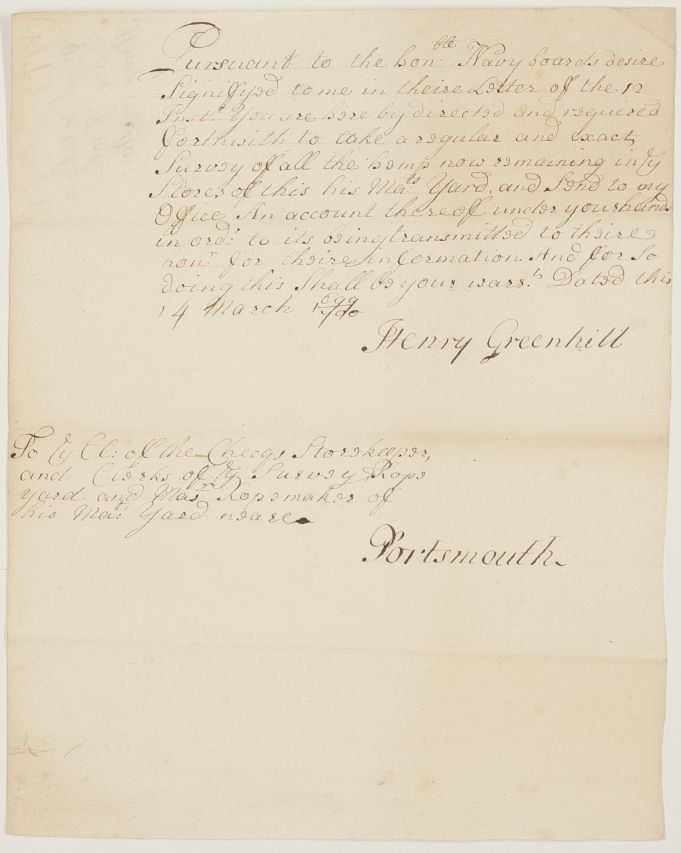 Pursuant to the hon:ble Navy boards desire
Signifyed to me in theire Letter of the 12
Inst.t You are here by directed and required
forthwith to take a regular and exact
Survey of all the hemp now remaining in ye
Stores of this his Ma:ts Yard, and Send to my
Office An account thereof under your hands
in ord:r to its being transmitted to theire
hon:rs for theire information And for So
doing this Shall be your warr:t Dated this
14 March 1699/700
Henry Greenhill
To ye Cl: of the Checqs Storekeeper,
and Clerks of ye Survey, Rope
yard and Mas:r Ropemaker of
his Ma:ts Yard neare
Portsmouth